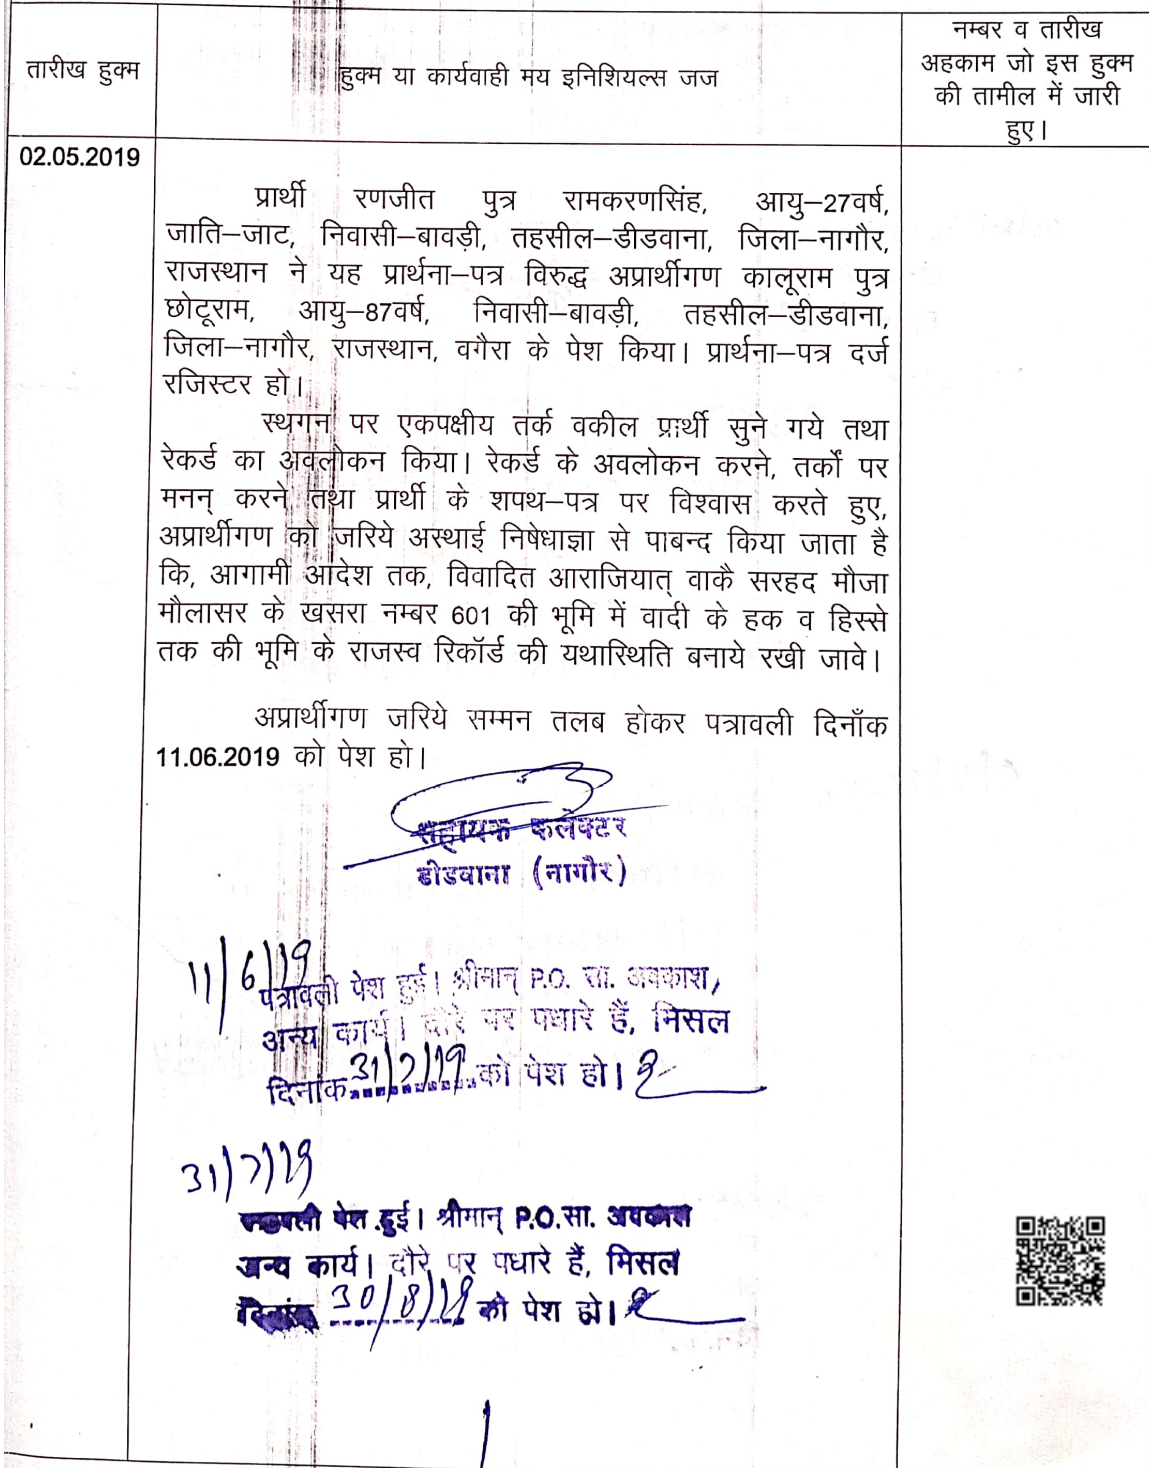 तारीख हुक्म
हुक्म या कार्यवाही मय इनिशियल्स जज
नम्बर व तारीख
अहकाम जो इस हुक्म
की तामील में जारी
हुए।
02.05.2019
प्रार्थी रणजीत पुत्र रामकरणसिंह, आयु–27वर्ष,
जाति–जाट, निवासी–बावड़ी, तहसील–डीडवाना, जिला–नागौर,
राजस्थान ने यह प्रार्थना–पत्र विरुद्ध अप्रार्थीगण कालूराम पुत्र
छोटूराम, आयु–87वर्ष, निवासी–बावड़ी, तहसील–डीडवाना,
जिला–नागौर, राजस्थान, वगैरा के पेश किया। प्रार्थना–पत्र दर्ज
रजिस्टर हो।
स्थगन पर एकपक्षीय तर्क वकील प्रार्थी सुने गये तथा
रेकर्ड का अवलोकन किया। रेकर्ड के अवलोकन करने, तर्कों पर
मनन् करने तथा प्रार्थी के शपथ–पत्र पर विश्वास करते हुए,
अप्रार्थीगण को जरिये अस्थाई निषेधाज्ञा से पाबन्द किया जाता है
कि, आगामी आदेश तक, विवादित आराजियात् वाकै सरहद मौजा
मौलासर के खसरा नम्बर 601 की भूमि में वादी के हक व हिस्से
तक की भूमि के राजस्व रिकॉर्ड की यथास्थिति बनाये रखी जावे।
अप्रार्थीगण जरिये सम्मन तलब होकर पत्रावली दिनाँक
11.06.2019 को पेश हो।
सहायक कलेक्टर
डीडवाना (नागौर)
11/6/19
पत्रावली पेश हुई। श्रीमान् P.O. सा. अवकाश,
अन्य कार्य। दौरे पर पधारे हैं, मिसल
दिनांक 31/7/19 को पेश हो।
31/7/19
पत्रावली पेश हुई। श्रीमान् P.O.सा. अवकाश
अन्य कार्य। दौरे पर पधारे हैं, मिसल
दिनांक 30/8/19 को पेश हो।